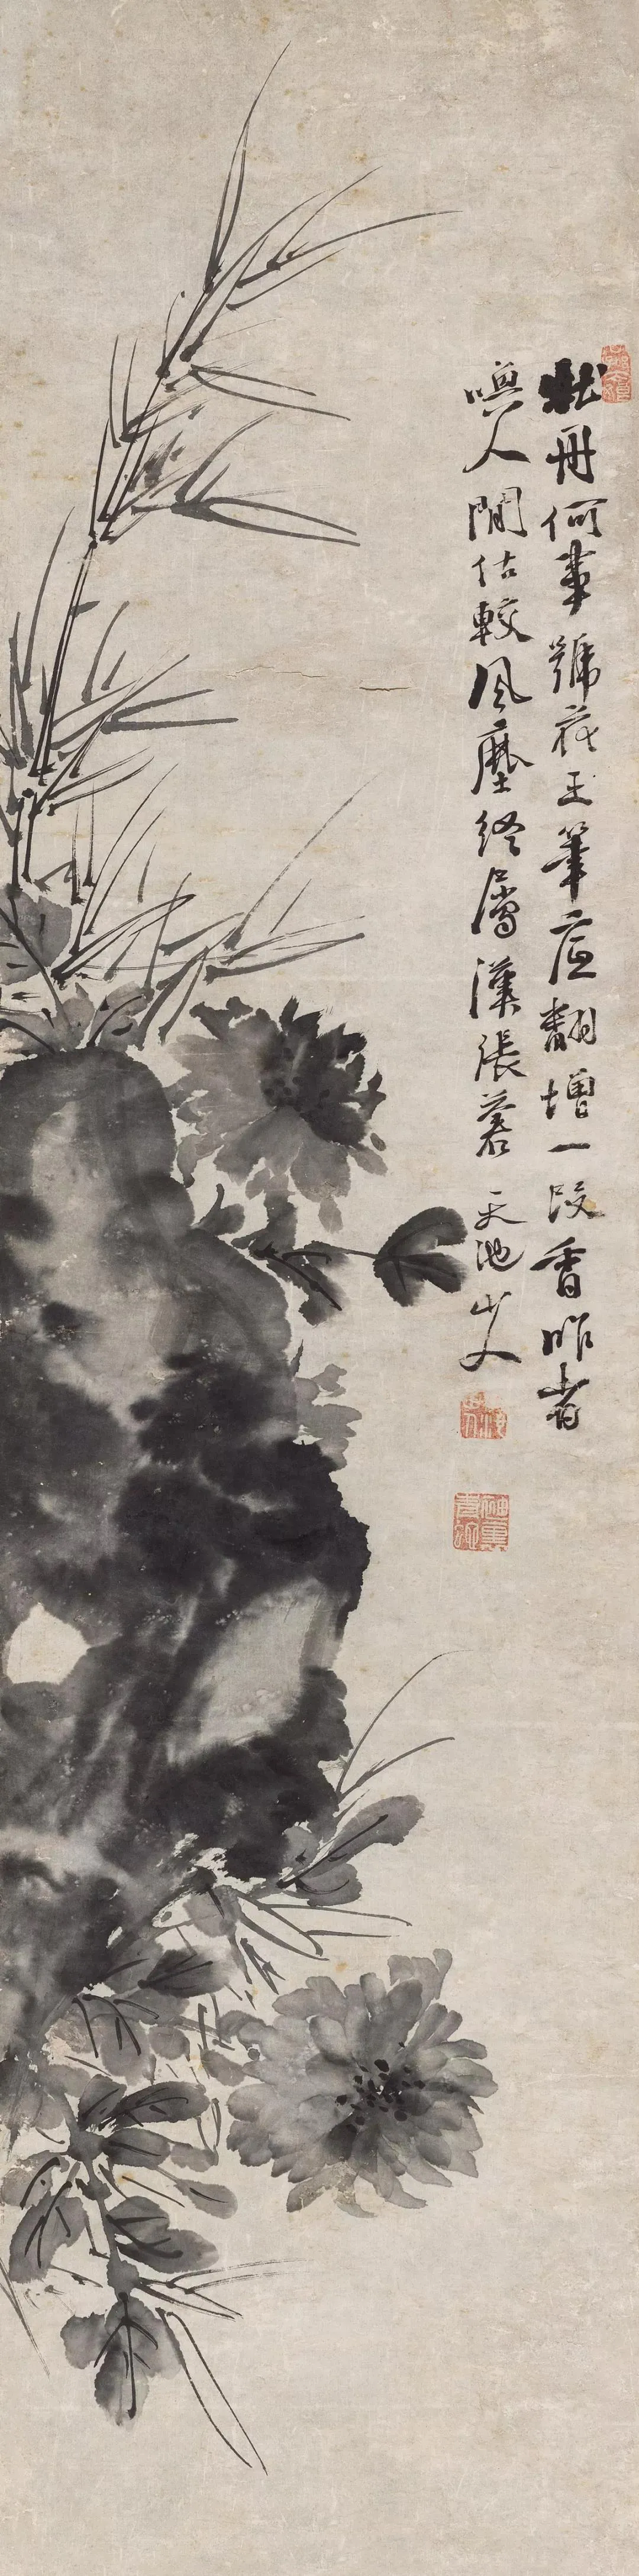 牡丹何事號花王筆底翻增一段香昨者
喚人閒估較風塵終屬漢張蒼 天池
山人